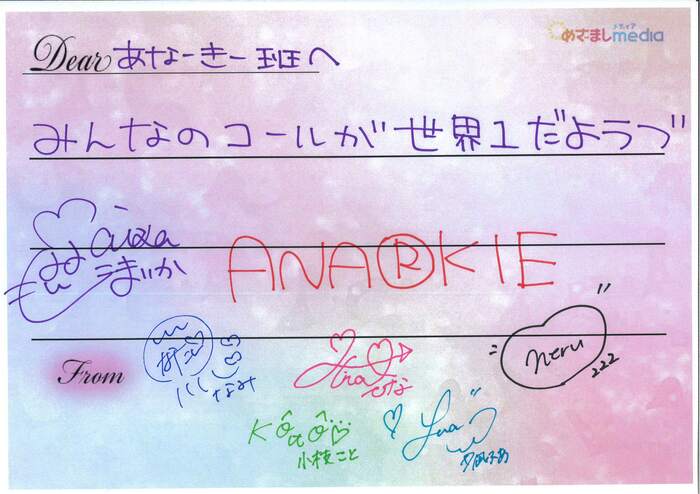 めざましmedia
メディア
Dear あなーきー班へ
みんなのコールが世界1だようづ
aixa
まいか
ANA®KIE
From
なみな
Hina
ひな
neru
222
Koto
小枝こと
Lua
夕凪るあ